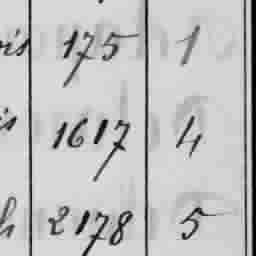 is 175 1
is 1617 4
h 2178 5